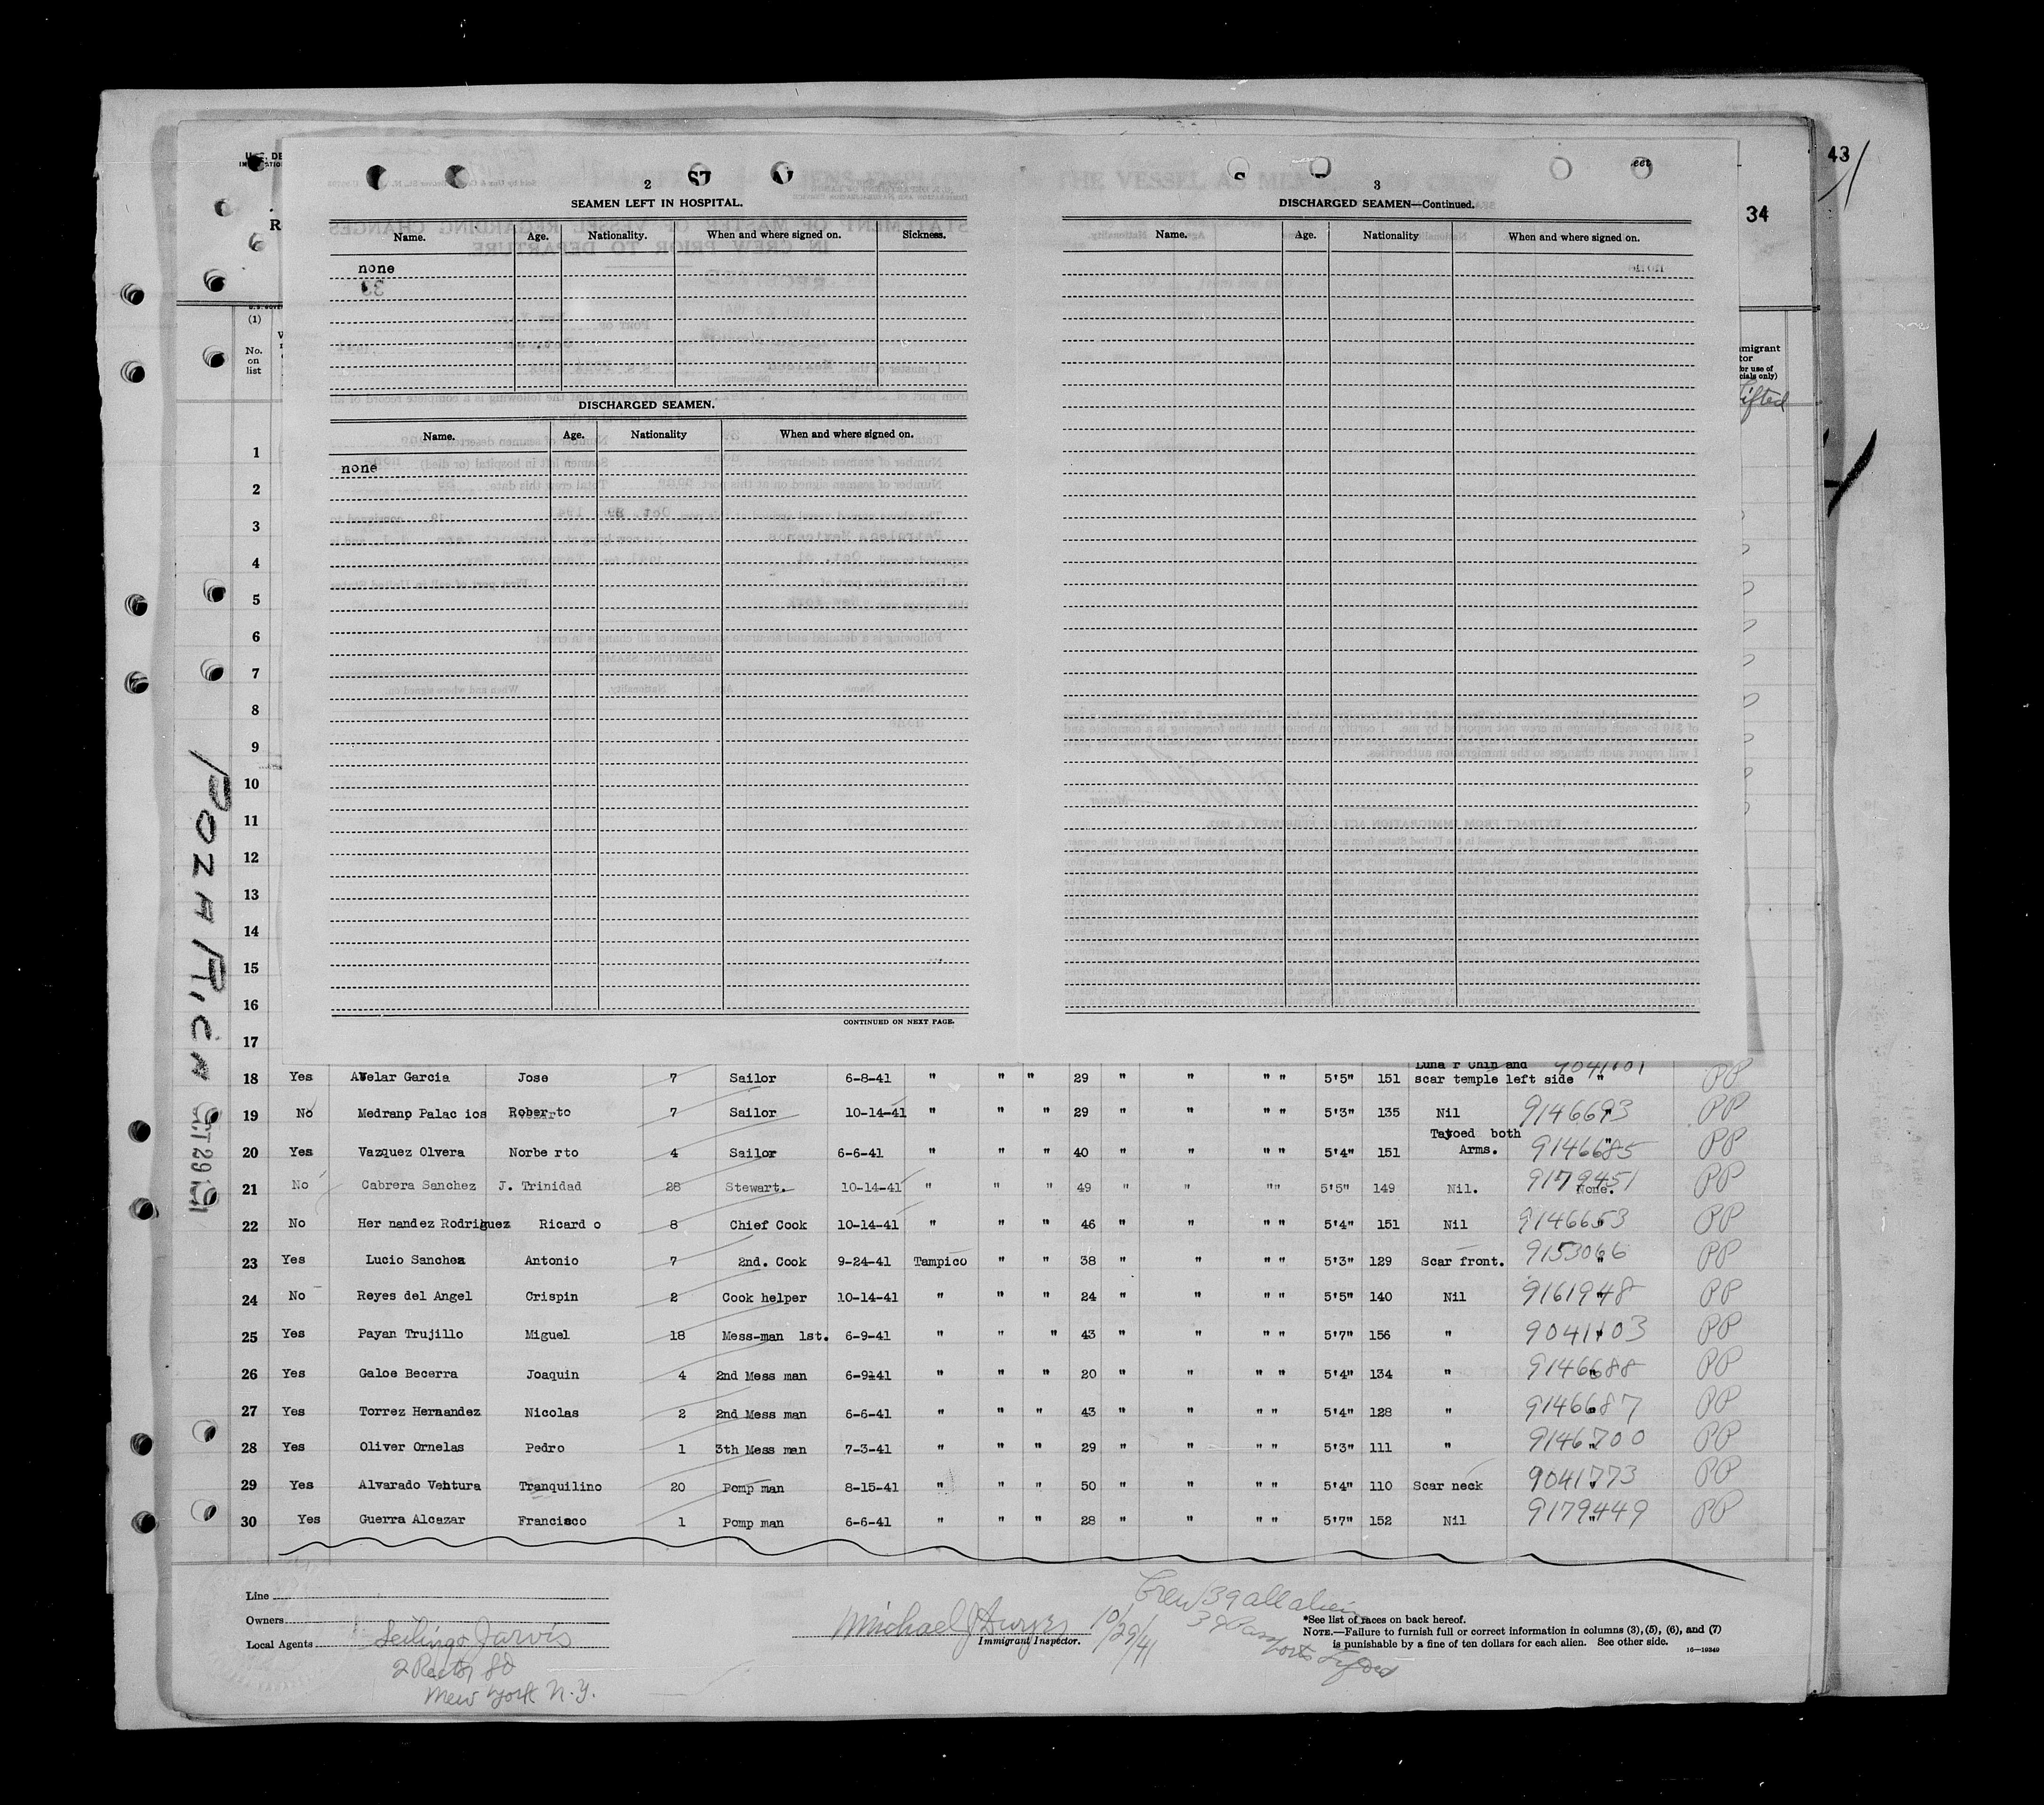 43
34
2
SEAMEN LEFT IN HOSPITAL.
Name. Age. Nationality. When and where signed on. Sickness.
none
DISCHARGED SEAMEN.
Name. Age. Nationality When and where signed on.
none
CONTINUED ON NEXT PAGE.
3
DISCHARGED SEAMEN—Continued.
Name. Age. Nationality When and where signed on.
(1)
No.
on
list
1
2
3
4
5
6
7
8
9
10
11
12
13
14
15
16
17
18 Yes Avelar Garcia Jose 7 Sailor 6-8-41 " " " 29 " " " " 5'5" 151 scar temple left side " PP
19 No Medranp Palac ios Roberto 7 Sailor 10-14-41 " " " 29 " " " " 5'3" 135 Nil 9146693 PP
20 Yes Vazquez Olvera Norbe rto 4 Sailor 6-6-41 " " " 40 " " " " 5'4" 151 Tatoed both Arms. 9146685 PP
21 No Cabrera Sanchez J. Trinidad 28 Stewart. 10-14-41 " " " 49 " " " " 5'5" 149 Nil. 9179451 None. PP
22 No Her nandez Rodriguez Ricard o 8 Chief Cook 10-14-41 " " " 46 " " " " 5'4" 151 Nil 9146653 PP
23 Yes Lucio Sanchez Antonio 7 2nd. Cook 9-24-41 Tampico " " 38 " " " " 5'3" 129 Scar front. 9153066 PP
24 No Reyes del Angel Crispin 2 Cook helper 10-14-41 " " " 24 " " " " 5'5" 140 Nil 9161948 PP
25 Yes Payan Trujillo Miguel 18 Mess-man 1st. 6-9-41 " " " 43 " " " " 5'7" 156 " 9041103 PP
26 Yes Galoe Becerra Joaquin 4 2nd Mess man 6-9-41 " " " 20 " " " " 5'4" 134 " 9146688 PP
27 Yes Torrez Hernandez Nicolas 2 2nd Mess man 6-6-41 " " " 43 " " " " 5'4" 128 " 9146687 PP
28 Yes Oliver Ornelas Pedro 1 3th Mess man 7-3-41 " " " 29 " " " " 5'3" 111 " 9146700 PP
29 Yes Alvarado Ventura Tranquilino 20 Pomp man 8-15-41 " " " 50 " " " " 5'4" 110 Scar neck 9041773 PP
30 Yes Guerra Alcazar Francisco 1 Pomp man 6-6-41 " " " 28 " " " " 5'7" 152 Nil 9179449 PP
Line
Owners
Local Agents
Jarvis
2 Rector St
New York N.Y.
Michael J Dwyer 10/29/41
Immigrant Inspector.
Crew 39 all aliens
39 Passports Lifted
*See list of races on back hereof.
NOTE.—Failure to furnish full or correct information in columns (3), (5), (6), and (7)
is punishable by a fine of ten dollars for each alien. See other side. 16—19349
POZA RICA
OCT 29 1941